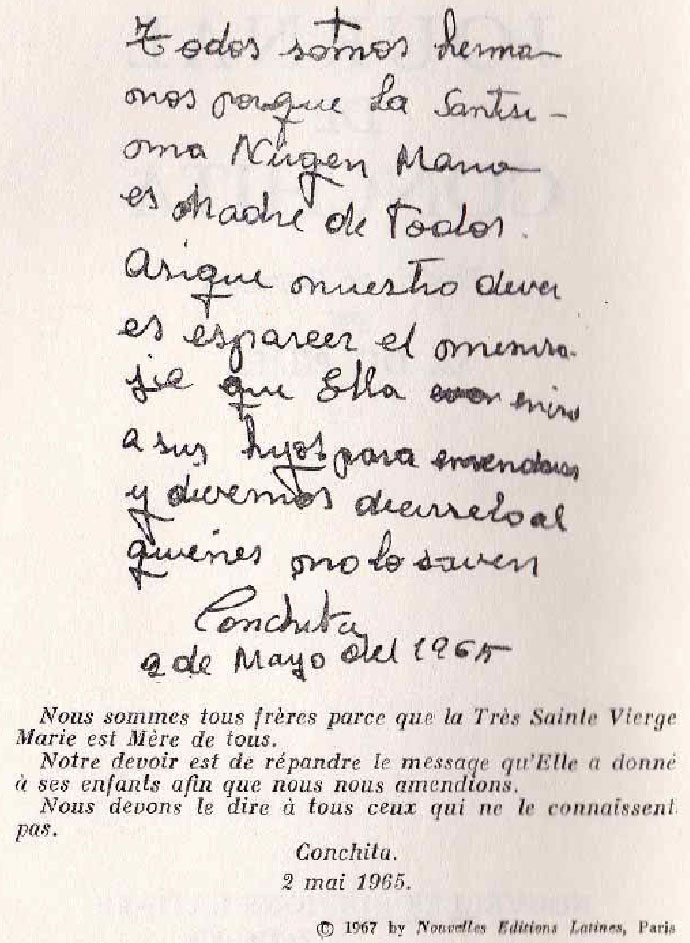 Todos somos herma-
nos porque la Santisi-
ma Virgen Maria
es Madre de Todos.
Asique nuestro dever
es esparcer el mensa-
je que Ella envio
a sus hijos para enmendarnos
y devemos decirselo al
quienes no lo saven
Conchita
2 de Mayo del 1965
Nous sommes tous frères parce que la Très Sainte Vierge
Marie est Mère de tous.
Notre devoir est de répandre le message qu'Elle a donné
à ses enfants afin que nous nous amendions.
Nous devons le dire à tous ceux qui ne le connaissent
pas.
Conchita.
2 mai 1965.
© 1967 by Nouvelles Editions Latines, Paris